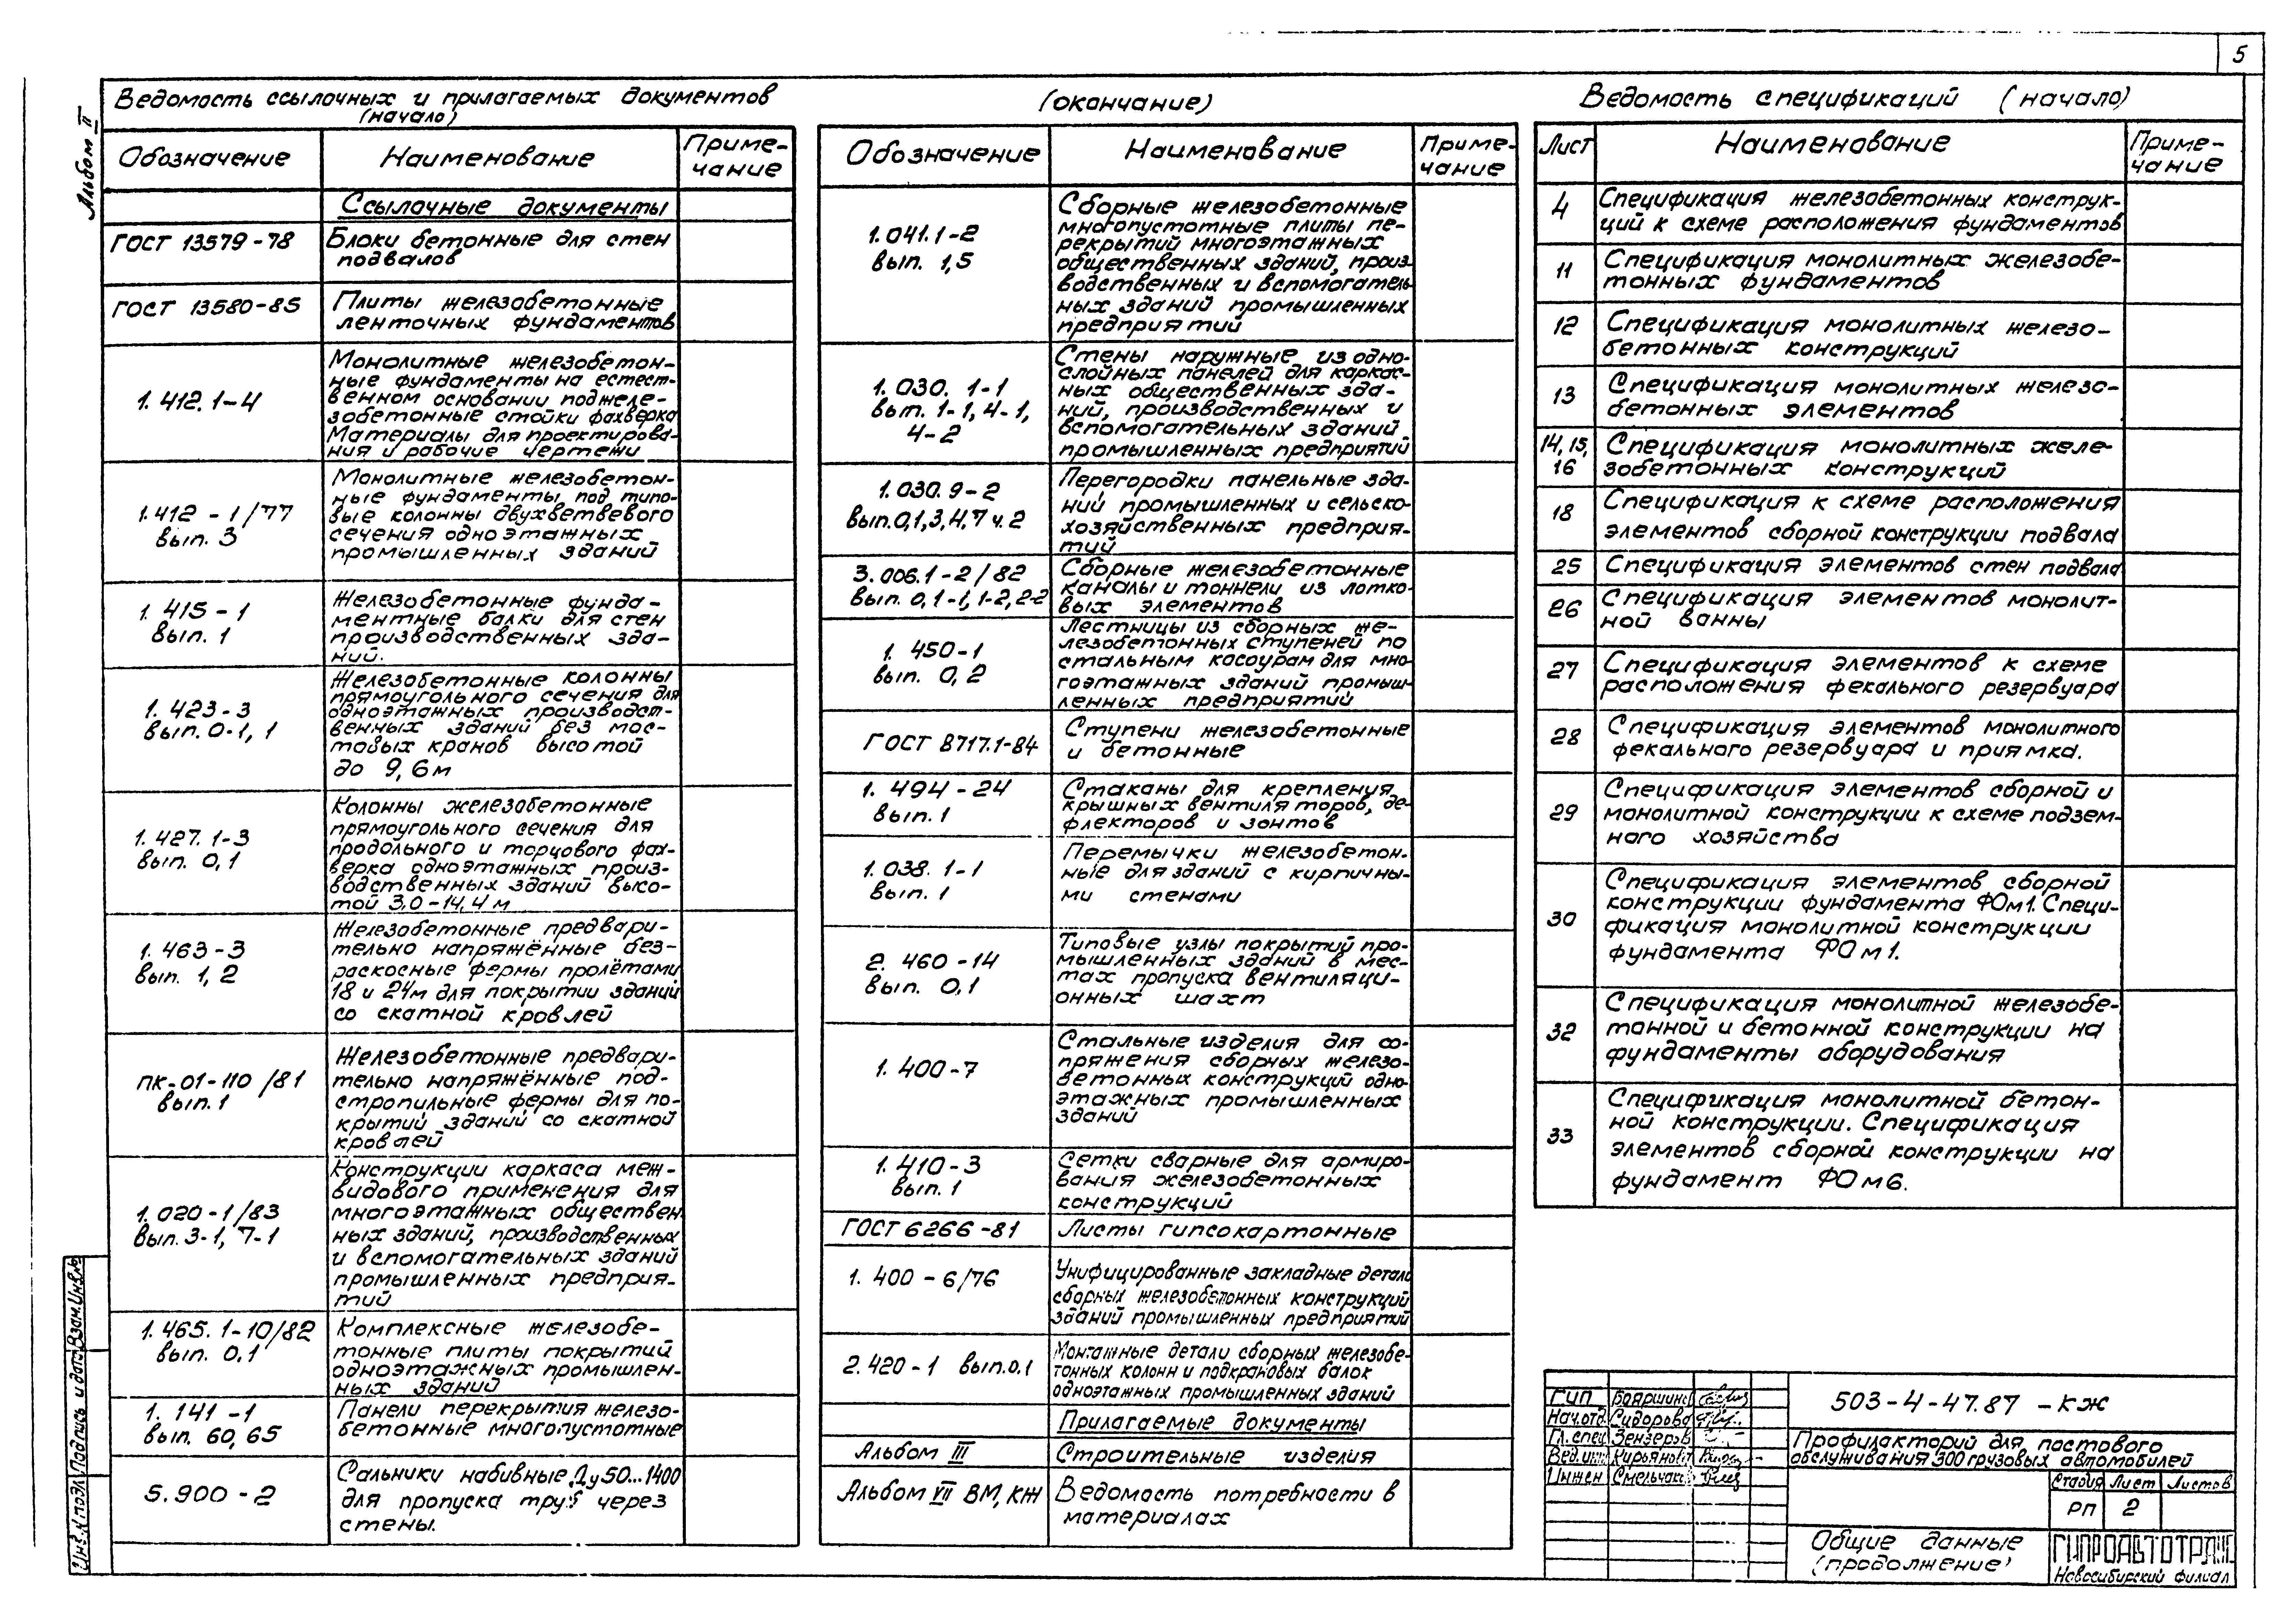 5
Альбом II
Ведомость ссылочных и прилагаемых документов
(начало)
Обозначение
Наименование
Приме-
чание
Ссылочные документы
ГОСТ 13579-78
Блоки бетонные для стен
подвалов
ГОСТ 13580-85
Плиты железобетонные
ленточных фундаментов
1.412.1-4
Монолитные железобетон-
ные фундаменты на естест-
венном основании поджеле-
зобетонные стойки фахверка
Материалы для проектирова-
ния и рабочие чертежи
1.412-1/77
вып. 3
Монолитные железобетон-
ные фундаменты под типо-
вые колонны двухветвевого
сечения одноэтажных
промышленных зданий
1.415-1
вып. 1
Железобетонные фунда-
ментные балки для стен
производственных зда-
ний.
1.423-3
вып. 0-1, 1
Железобетонные колонны
прямоугольного сечения для
одноэтажных производст-
венных зданий без мос-
товых кранов высотой
до 9,6м
1.427.1-3
вып. 0,1
Колонны железобетонные
прямоугольного сечения для
продольного и торцового фах-
верка одноэтажных произ-
водственных зданий высо-
той 3,0-14,4м
1.463-3
вып. 1, 2
Железобетонные предвари-
тельно напряжённые без-
раскосные фермы пролётами
18 и 24м для покрытии зданий
со скатной кровлей
пк-01-110/81
вып.1
Железобетонные предвари-
тельно напряжённые под-
стропильные фермы для по-
крытий зданий со скатной
кровлей
1.020-1/83
вып. 3-1, 7-1
Конструкции каркаса меж-
видового применения для
многоэтажных обществен
ных зданий, производственных
и вспомогательных зданий
промышленных предприя-
тий
1.465.1-10/82
вып. 0,1
Комплексные железобе-
тонные плиты покрытий
одноэтажных промышлен-
ных зданий
1.141-1
вып. 60,65
Панели перекрытия железо-
бетонные многопустотные
5.900-2
Сальники набивные Ду50...1400
для пропуска труб через
стены.
(окончание)
Обозначение
Наименование
Приме-
чание
1.041.1-2
вып. 1,5
Сборные железобетонные
многопустотные плиты пе-
рекрытий многоэтажных
общественных зданий, произ-
водственных и вспомогатель-
ных зданий промышленных
предприятий
1.030.1-1
вып. 1-1, 4-1,
4-2
Стены наружные из одно-
слойных панелей для каркас-
ных общественных зда-
ний, производственных и
вспомогательных зданий
промышленных предприятий
1.030.9-2
вып.0,1,3,4,7 ч.2
Перегородки панельные зда-
ний промышленных и сельско-
хозяйственных предприя-
тий
3.006.1-2/82
вып. 0, 1-1, 1-2, 2-2
Сборные железобетонные
каналы и тоннели из лотко-
вых элементов
1.450-1
вып. 0,2
Лестницы из сборных же-
лезобетонных ступеней по
стальным косоурам для мно-
гоэтажных зданий промыш-
ленных предприятий
ГОСТ 8717.1-84
Ступени железобетонные
и бетонные
1.494-24
вып. 1
Стаканы для крепления
крышных вентиляторов, де-
флекторов и зонтов
1.038.1-1
вып. 1
Перемычки железобетон-
ные для зданий с кирпичны-
ми стенами
2.460-14
вып. 0,1
Типовые узлы покрытий про-
мышленных зданий в мес-
тах пропуска вентиляци-
онных шахт
1.400-7
Стальные изделия для со-
пряжения сборных железо-
бетонных конструкций одно-
этажных промышленных
зданий
1.410-3
вып. 1
Сетки сварные для армиро-
вания железобетонных
конструкций
ГОСТ 6266-81
Листы гипсокартонные
1.400-6/76
Унифицированные закладные детали
сборных железобетонных конструкций
зданий промышленных предприятий
2.420-1 вып.0.1
Монтажные детали сборных железобе-
тонных колонн и подкрановых балок
одноэтажных промышленных зданий
Прилагаемые документы
Альбом III
Строительные изделия
Альбом VII ВМ, КЖ
Ведомость потребности в
материалах
Ведомость спецификаций (начало)
Лист
Наименование
Приме-
чание
4
Спецификация железобетонных конструк-
ций к схеме расположения фундаментов
11
Спецификация монолитных железобе-
тонных фундаментов
12
Спецификация монолитных железо-
бетонных конструкций
13
Спецификация монолитных железо-
бетонных элементов
14, 15,
16
Спецификация монолитных желе-
зобетонных конструкций
18
Спецификация к схеме расположения
элементов сборной конструкции подвала
25
Спецификация элементов стен подвала
26
Спецификация элементов монолит-
ной ванны
27
Спецификация элементов к схеме
расположения фекального резервуара
28
Спецификация элементов монолитного
фекального резервуара и приямка.
29
Спецификация элементов сборной и
монолитной конструкции к схеме подзем-
ного хозяйства
30
Спецификация элементов сборной
конструкции фундамента ФОм1. Специ-
фикация монолитной конструкции
фундамента ФОм1.
32
Спецификация монолитной железобе-
тонной и бетонной конструкции на
фундаменты оборудования
33
Спецификация монолитной бетон-
ной конструкции. Спецификация
элементов сборной конструкции на
фундамент ФОм6.
ГИП
Нач.отд
Сидорова
Гл.спец
Зензеров
Вед.инж
Инжен
503-4-47.87 -КЖ
Профилакторий для постового
обслуживания 300 грузовых автомобилей
Стадия Лист Листов
РП 2
Общие данные
(продолжение)
ГИПРОАВТОТРАНС
Новосибирский филиал
Инв.№подл. Подпись и дата Взам.Инв.№